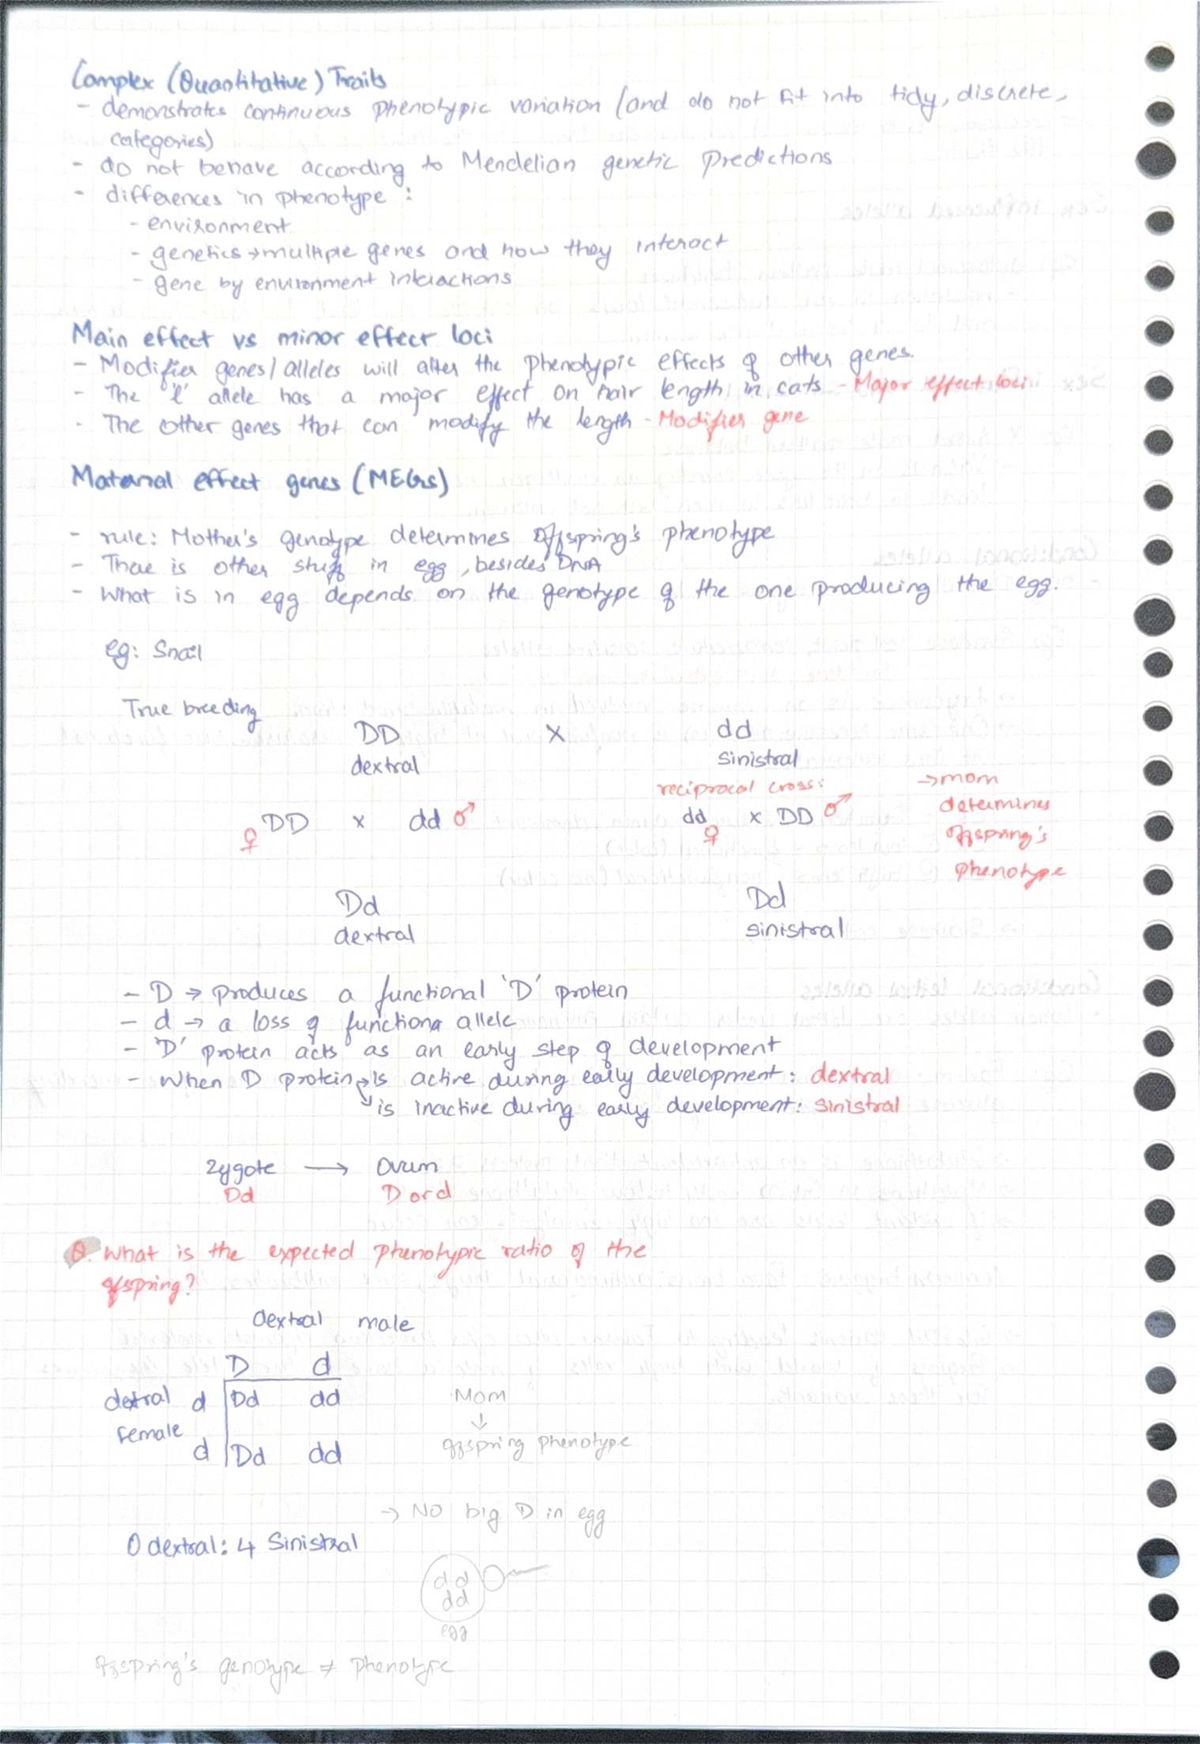 Complex (Quantitative) Traits
- demonstrates continuous phenotypic variation (and do not fit into tidy, discrete,
categories)
- do not behave according to Mendelian genetic predictions
- differences in phenotype :
- environment
- genetics → multiple genes and how they interact
- gene by environment interactions
Main effect vs minor effect loci
- Modifier genes/alleles will alter the phenotypic effects of other genes.
- The 'l' allele has a major effect on hair length in cats - Major effect loci
- The other genes that can modify the length - Modifier gene
Maternal effect genes (MEGs)
- rule: Mother's genotype determines offspring's phenotype
- There is other stuff in egg, besides DNA
- What is in egg depends on the genotype of the one producing the egg.
eg: Snail
True breeding
DD X dd
dextral sinistral
reciprocal cross: → mom
♀ DD x dd ♂ dd ♀ x DD ♂ determines
offspring's
phenotype
Dd Dd
dextral sinistral
- D → produces a functional 'D' protein
- d → a loss of functiona allele
- 'D' protein acts as an early step of development
- When D protein → is active during early development: dextral
→ is inactive during early development: sinistral
zygote → Ovum
Dd D or d
Q. What is the expected phenotypic ratio of the
offspring?
dextral male
D d
detral d Dd dd Mom
female ↓
d Dd dd offspring phenotype
→ NO big D in egg
0 dextral: 4 Sinistral
dd
dd
egg
offspring's genotype ≠ phenotype